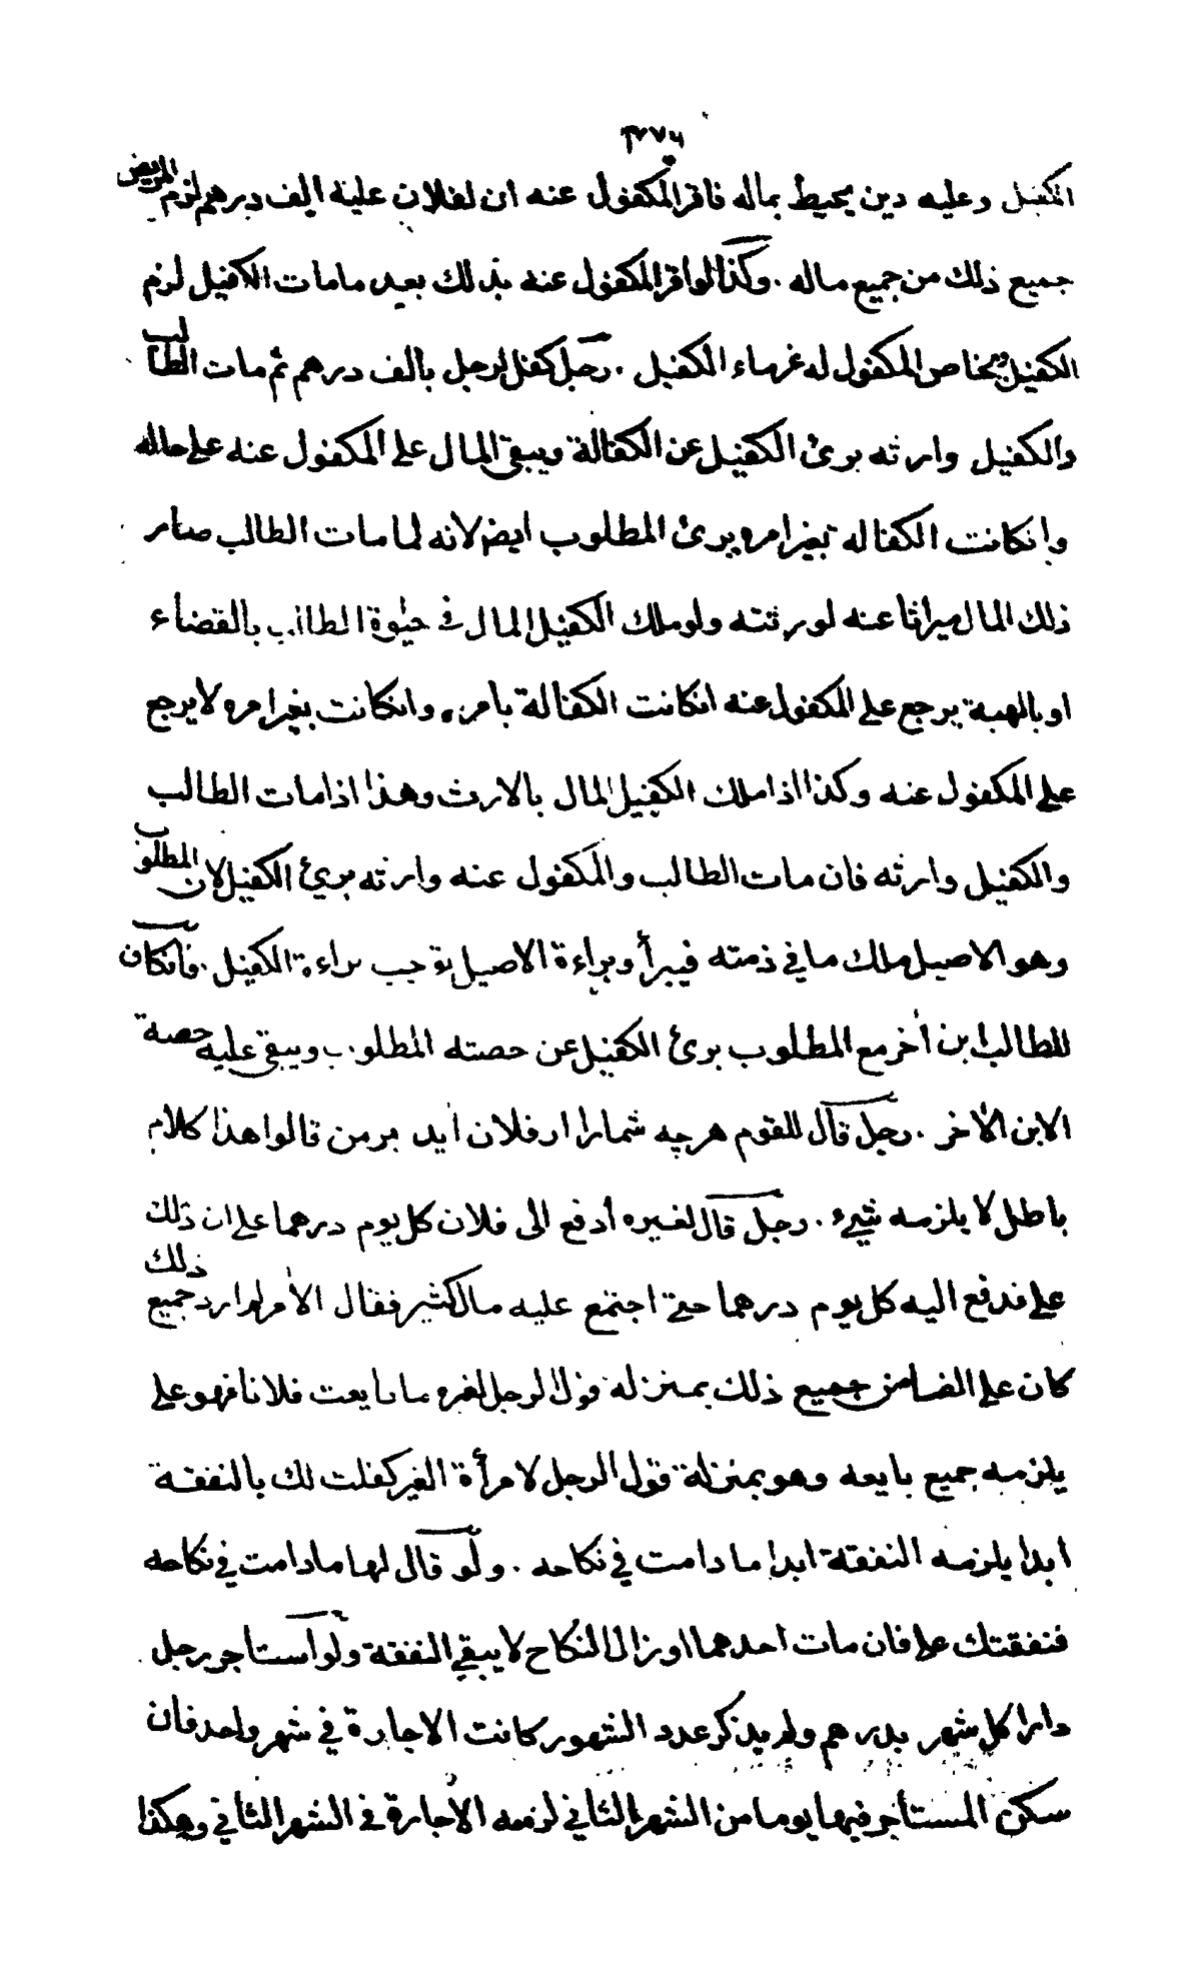 ٢٧٦
الكفيل وعليه دين يحيط بماله فاقر المكفول عنه ان لفلان عليه الف درهم لزم المريض
جميع ذلك من جميع ماله . وكذا لو اقر المكفول عنه بذلك بعد ما مات الكفيل لزم
الكفيل ويخاص المكفول له غرماء الكفيل . رجل كفل لرجل بالف درهم ثم مات الطالب
والكفيل وارثه برئ الكفيل عن الكفالة ويبقى المال على المكفول عنه على حاله
وانكانت الكفاله بغير امره برئ المطلوب ايضا لانه لما مات الطالب صار
ذلك المال ميراثا عنه لورثته ولو ملك الكفيل المال في حيوة الطالب بالقضاء
او بالهبة يرجع على المكفول عنه انكانت الكفالة بامره وانكانت بغير امره لا يرجع
على المكفول عنه وكذا اذا ملك الكفيل المال بالارث وهذا اذا مات الطالب
والكفيل وارثه فان مات الطالب والمكفول عنه وارثه برئ الكفيل لان المطلوب
وهو الاصيل ملك ما في ذمته فيبرأ وبراءة الاصيل توجب براءة الكفيل . فانكان
للطالب ابن أخر مع المطلوب برئ الكفيل عن حصته المطلوب ويبقى عليه حصة
الابن الأخر . رجل قال للقوم هرچه شمارا ار فلان أيد بر من قالوا هذا كلام
باطل لا يلزمه شيء . رجل قال لغيره أدفع الى فلان كل يوم درهما على ان ذلك
على فدفع اليه كل يوم درهما حتى اجتمع عليه مال كثير فقال الأمر لم ارد جميع ذلك
كان على الضامن جميع ذلك بمنزله قول الرجل لغيره ما بايعت فلانا فهو على
يلزمه جميع بايعه وهو بمنزلة قول الرجل لامرأة الغير كفلت لك بالنفقة
ابدا يلزمه النفقة ابدا ما دامت في نكاحه . ولو قال لها ما دامت في نكاحه
فنفقتك على فان مات احدهما او زال النكاح لا يبقى النفقة ولو استاجر رجل
دارا كل شهر بدرهم ولم يذكر عدد الشهور كانت الاجارة في شهر واحد فان
سكن المستأجر فيها يوما من الشهر الثاني لزمه الأجارة في الشهر الثاني وهكذا